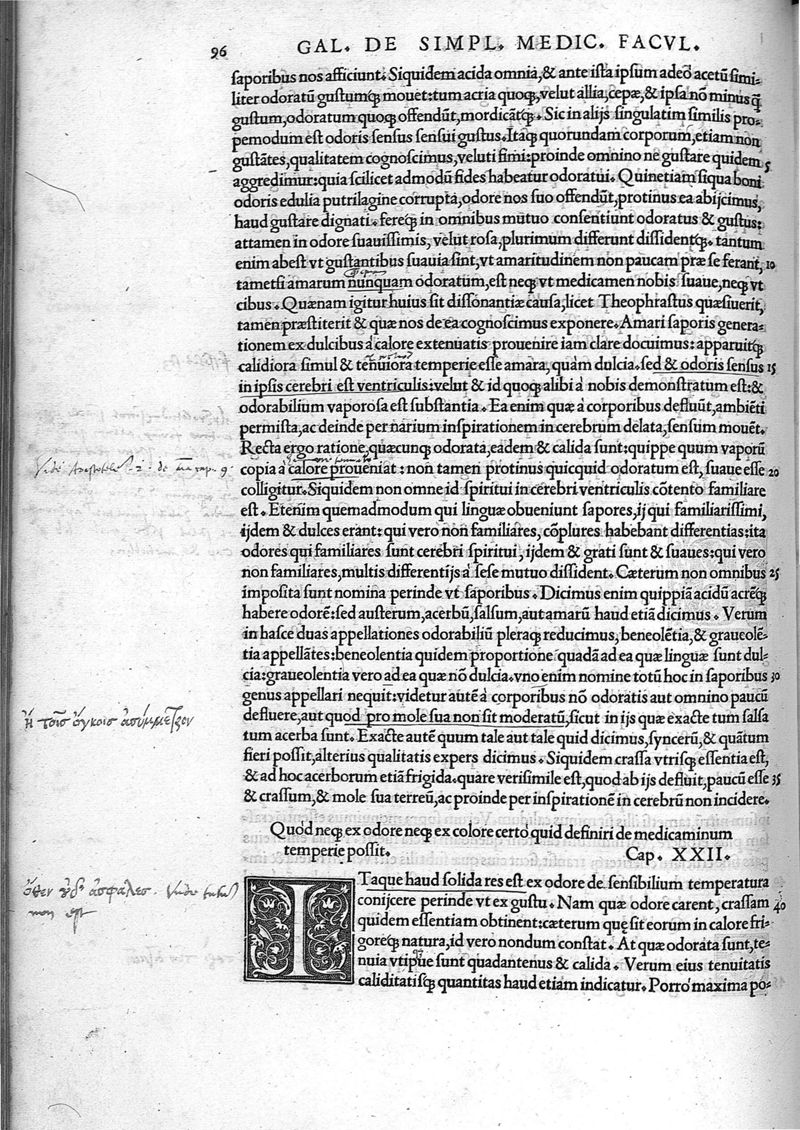 96 GAL. DE SIMPL. MEDIC. FACVL.
saporibus nos afficiunt. Siquidem acida omnia,& ante ista ipsum adeò acetū simi-
liter odoratū gustumq́ꝫ mouet: tum acria quoqꝫ, velut allia, cepæ, & ipsa nō minus q̄
gustum, odoratum quoqꝫ offendūt, mordicātq́ꝫ. Sic in alijs singulatim similis pro-
pemodum est odoris sensus sensui gustus. Itaqꝫ quorundam corporum, etiam non
gustātes, qualitatem cognoscimus, veluti fimi: proinde omnino ne gustare quidem 5
aggredimur: quia scilicet admodū fides habeatur odoratui. Quinetiam siqua boni
odoris edulia putrilagine corrupta, odore nos suo offendūt, protinus ea abijcimus,
haud gustare dignati. fereqꝫ in omnibus mutuo consentiunt odoratus & gustus:
attamen in odore suauissimis, velut rosa, plurimum differunt dissidentq́ꝫ. tantum
enim abest vt gustantibus suauia sint, vt amaritudinem non paucam præ se ferant, 10
tametsi amarum nunquam odoratum, est neqꝫ vt medicamen nobis suaue, neqꝫ vt
cibus. Quænam igitur huius sit dissonantiæ causa, licet Theophrastus quæsiuerit,
tamen præstiterit & quæ nos de ea cognoscimus exponere. Amari saporis genera-
tionem ex dulcibus à calore extenuatis prouenire iam clare docuimus: apparuitq́ꝫ
calidiora simul & tenuiora temperie esse amara, quàm dulcia. sed & odoris sensus 15
in ipsis cerebri est ventriculis: velut & id quoqꝫ alibi à nobis demonstratum est: &
odorabilium vaporosa est substantia. Ea enim quæ à corporibus defluūt, ambiēti
permista, ac deinde per narium inspirationem in cerebrum delata, sensum mouēt.
Recta ergo ratione, quæcunqꝫ odorata, eadem & calida sunt: quippe quum vaporū
Vide Aristotelem 2. de cap. 9
copia à calore proueniat: non tamen protinus quicquid odoratum est, suaue esse 20
colligitur. Siquidem non omne id spiritui in cerebri ventriculis cōtento familiare
est. Etenim quemadmodum qui linguæ obueniunt sapores, ij qui familiarissimi,
ijdem & dulces erant: qui vero non familiares, cōplures habebant differentias: ita
odores qui familiares sunt cerebri spiritui, ijdem & grati sunt & suaues: qui vero
non familiares, multis differentijs à sese mutuo dissident. Cæterum non omnibus 25
imposita sunt nomina perinde vt saporibus. Dicimus enim quippiā acidū acrēqꝫ
habere odorē: sed austerum, acerbū, salsum, aut amarū haud etiā dicimus. Verum
in hasce duas appellationes odorabiliū pleraqꝫ reducimus, beneolētia, & graueolē-
tia appellātes: beneolentia quidem proportione quadā ad ea quæ linguæ sunt dul-
cia: graueolentia vero ad ea quæ nō dulcia. vno enim nomine totū hoc in saporibus 30
genus appellari nequit: videtur autē à corporibus nō odoratis aut omnino paucū
ἢ τοῖσ ὄγκοισ ἀσύμμετρον
defluere, aut quod pro mole sua non sit moderatū, sicut in ijs quæ exacte tum salsa
tum acerba sunt. Exacte autē quum tale aut tale quid dicimus, syncerū, & quātum
fieri possit, alterius qualitatis expers dicimus. Siquidem crassa vtrisqꝫ essentia est,
& ad hoc acerborum etiā frigida. quare verisimile est, quod ab ijs defluit, paucū esse 35
& crassum, & mole sua terreū, ac proinde per inspirationē in cerebrū non incidere.
Quòd neqꝫ ex odore neqꝫ ex colore certò quid definiri de medicaminum
temperie possit. Cap. XXII.
ὅθεν οὐδ' ἀσφαλὲσ. Vnde
non est
ITaque haud solida res est ex odore de sensibilium temperatura
conijcere perinde vt ex gustu. Nam quæ odore carent, crassam 40
quidem essentiam obtinent: cæterum quę sit eorum in calore fri-
goreqꝫ natura, id vero nondum constat. At quæ odorata sunt, te-
nuia vtiqꝫ sunt quadantenus & calida. Verum eius tenuitatis
caliditatisq́ꝫ quantitas haud etiam indicatur. Porrò maxima po-